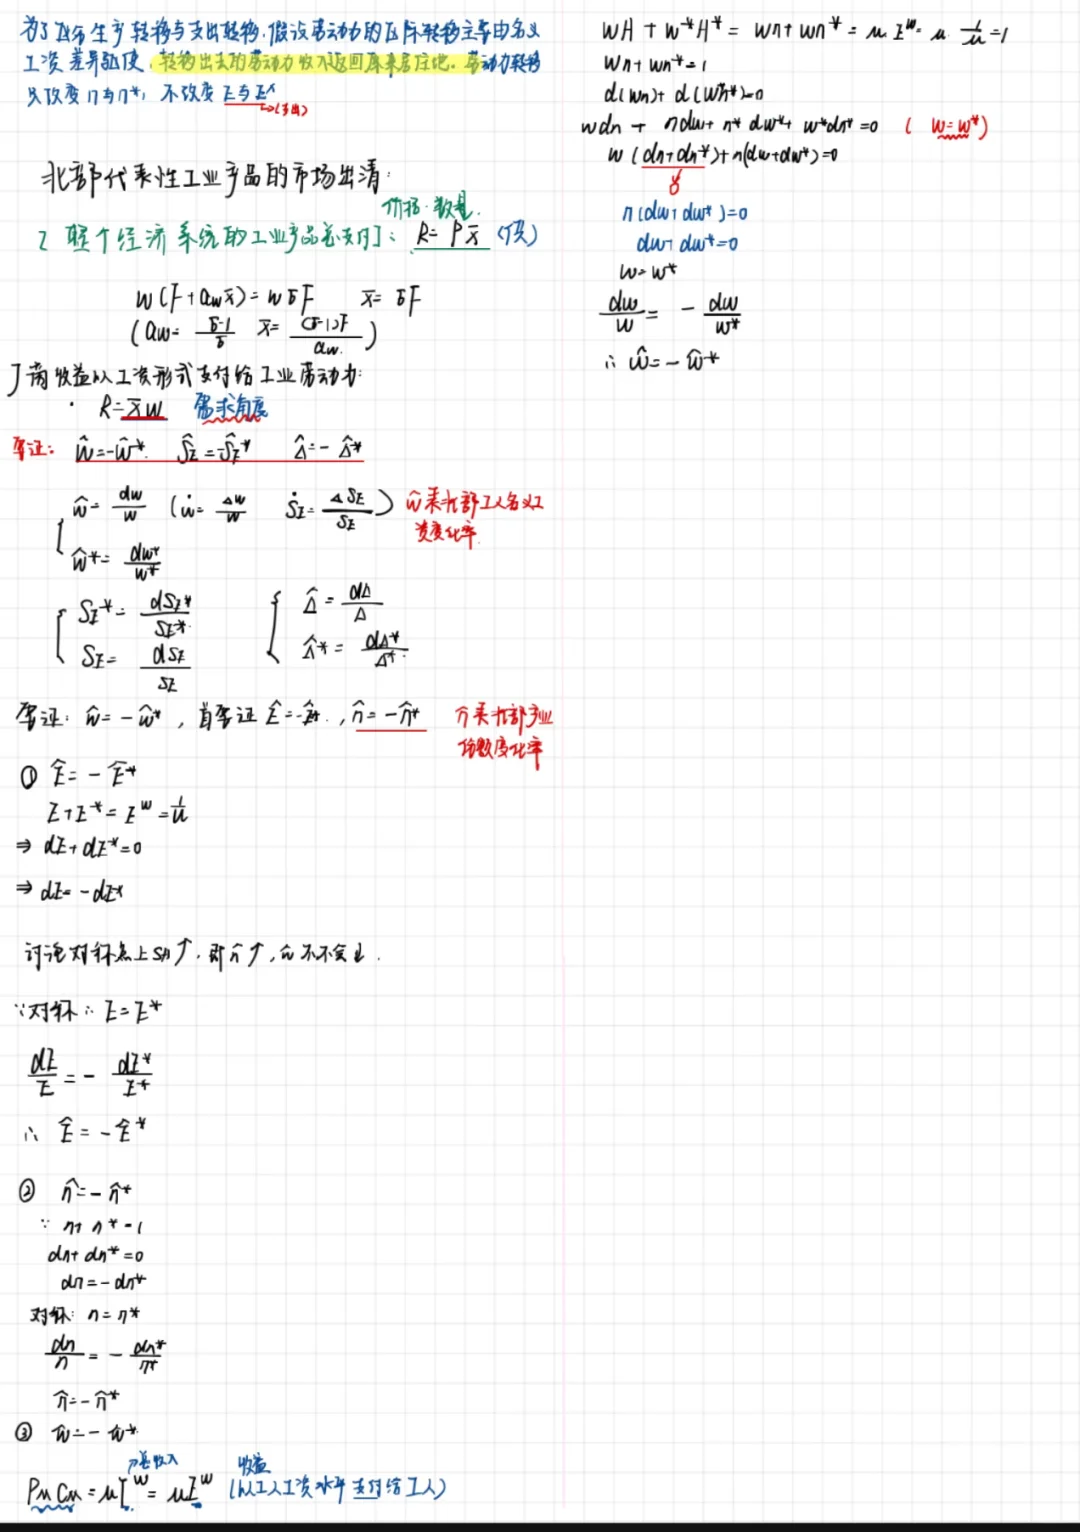 为了区分生产转移与支出转移,假设劳动力的区际转移主要由名义
工资差异驱使,转移出去的劳动力收入返回原来居住地。劳动力转移
只改变n与n*,不改变E与E*
↳(支出)
北部代表性工业产品的市场出清:
价格·数量.
2 整个经济系统的工业产品总支付]: R=Px̄ (供)
w(F+aₘx̄)=wδF x̄=δF
(aₘ= δ-1/δ x̄= (δ-1)F/aₘ.)
厂商收益以工资形式支付给工业劳动力:
· R=x̄w 需求角度
要证: ŵ=-ŵ*. ŜE=-ŜE* Δ̂=-Δ̂*
ŵ= dw/w (ẇ= Δw/w ṠE= ΔSE/SE) ŵ表北部工人名义工
资变化率.
ŵ*= dw*/w*
SE*= dSE*/SE* Δ̂= dΔ/Δ
SE= dSE/SE Δ̂*= dΔ*/Δ*
要证: ŵ=-ŵ*, 首要证 Ê=-Ê*., n̂=-n̂* n̂表北部产业
份数变化率
① Ê=-Ê*
E+E*=Eʷ=1/u
⇒ dE+dE*=0
⇒ dE=-dE*
讨论对称点上Sn↑,即n̂↑,
∵对称∴E=E*
dE/E=- dE*/E*
∴ Ê=-Ê*
② n̂=-n̂*
∵ n+n*=1
dn+dn*=0
dn=-dn*
对称: n=n*
dn/n=- dn*/n*
n̂=-n̂*
③ ŵ=-ŵ*
→总收入 收益
PₘCₘ=μIʷ=μEʷ (以工人工资水平支付给工人)
wH+w*H*=wn+wn*=μEʷ=μ·1/μ=1
wn+wn*=1
d(wn)+d(w*n*)=0
wdn+ndw+n*dw*+w*dn*=0 (w=w*)
w(dn+dn*)+n(dw+dw*)=0
0
n(dw+dw*)=0
dw+dw*=0
w=w*
dw/w=- dw/w*
∴ŵ=-ŵ*